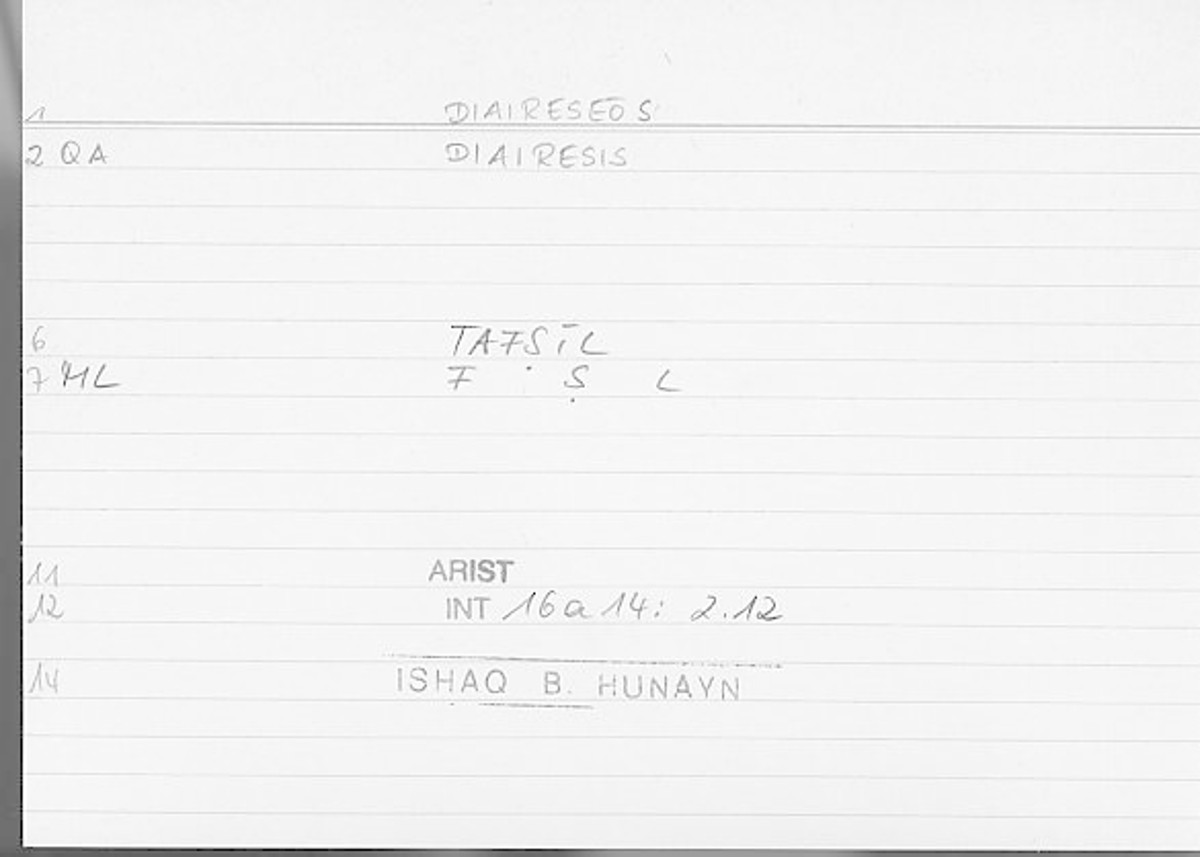 1 DIAIRESEŌS
2 QA DIAIRESIS
6 TAFṢĪL
7 ML F Ṣ L
11 ARIST
12 INT 16a14: 2.12
14 ISHAQ B. HUNAYN